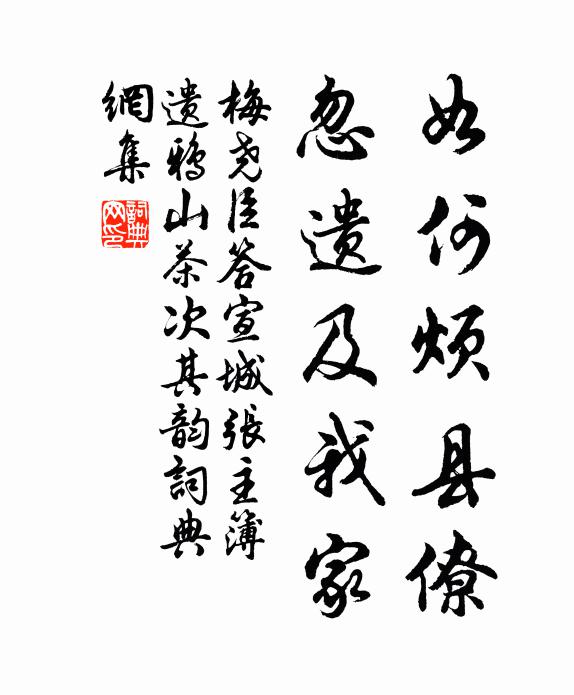 如何烦县僚
忽遗及我家
梅尧臣答宣城張主簿
遗鸦山茶次其韵詞典
網集
詞典
网